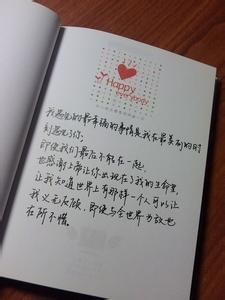 Happy
everyday
我遇见的最幸福的事情是我在最美丽的时
刻遇见了你.
即使我们最后不能在一起,
也感谢上帝让你出现在了我的生命里,
让我知道世界上有那样一个人可以让
我义无反顾,即使与全世界为敌也
在所不惜.